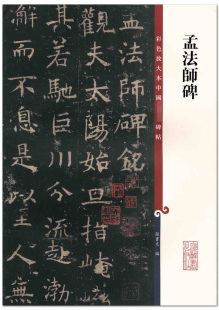 孟法師碑
彩色放大本中國
碑帖
孟法師碑銘
觀夫太陽始旦指崦
若馳巨川分流赴渤
澥而不息是以至人無